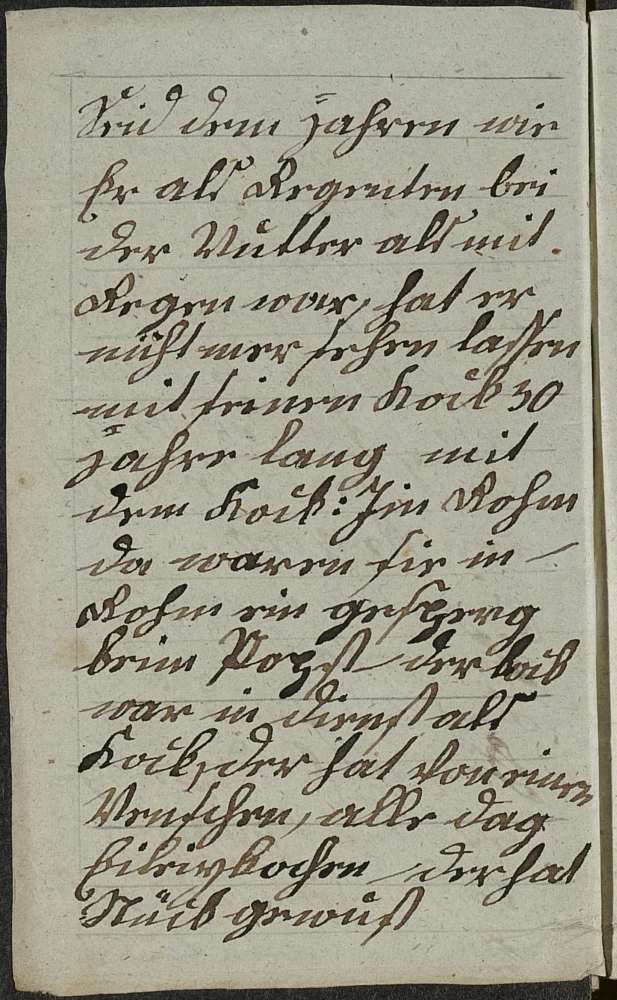 Seid dem Jahren wie
Er als Regenten bei
der Mutter als mit
Regen war, hat er
nicht mer sehen lassen
mit seinen Kock 30
Jahre lang mit
dem Kock: Im Rohm
da waren sie in
Rohm ein gespreg
beim Popst der
war in dienst als
Kock, der hat von einen
Menschen, alle dag
kochen der hat
Stück gewust